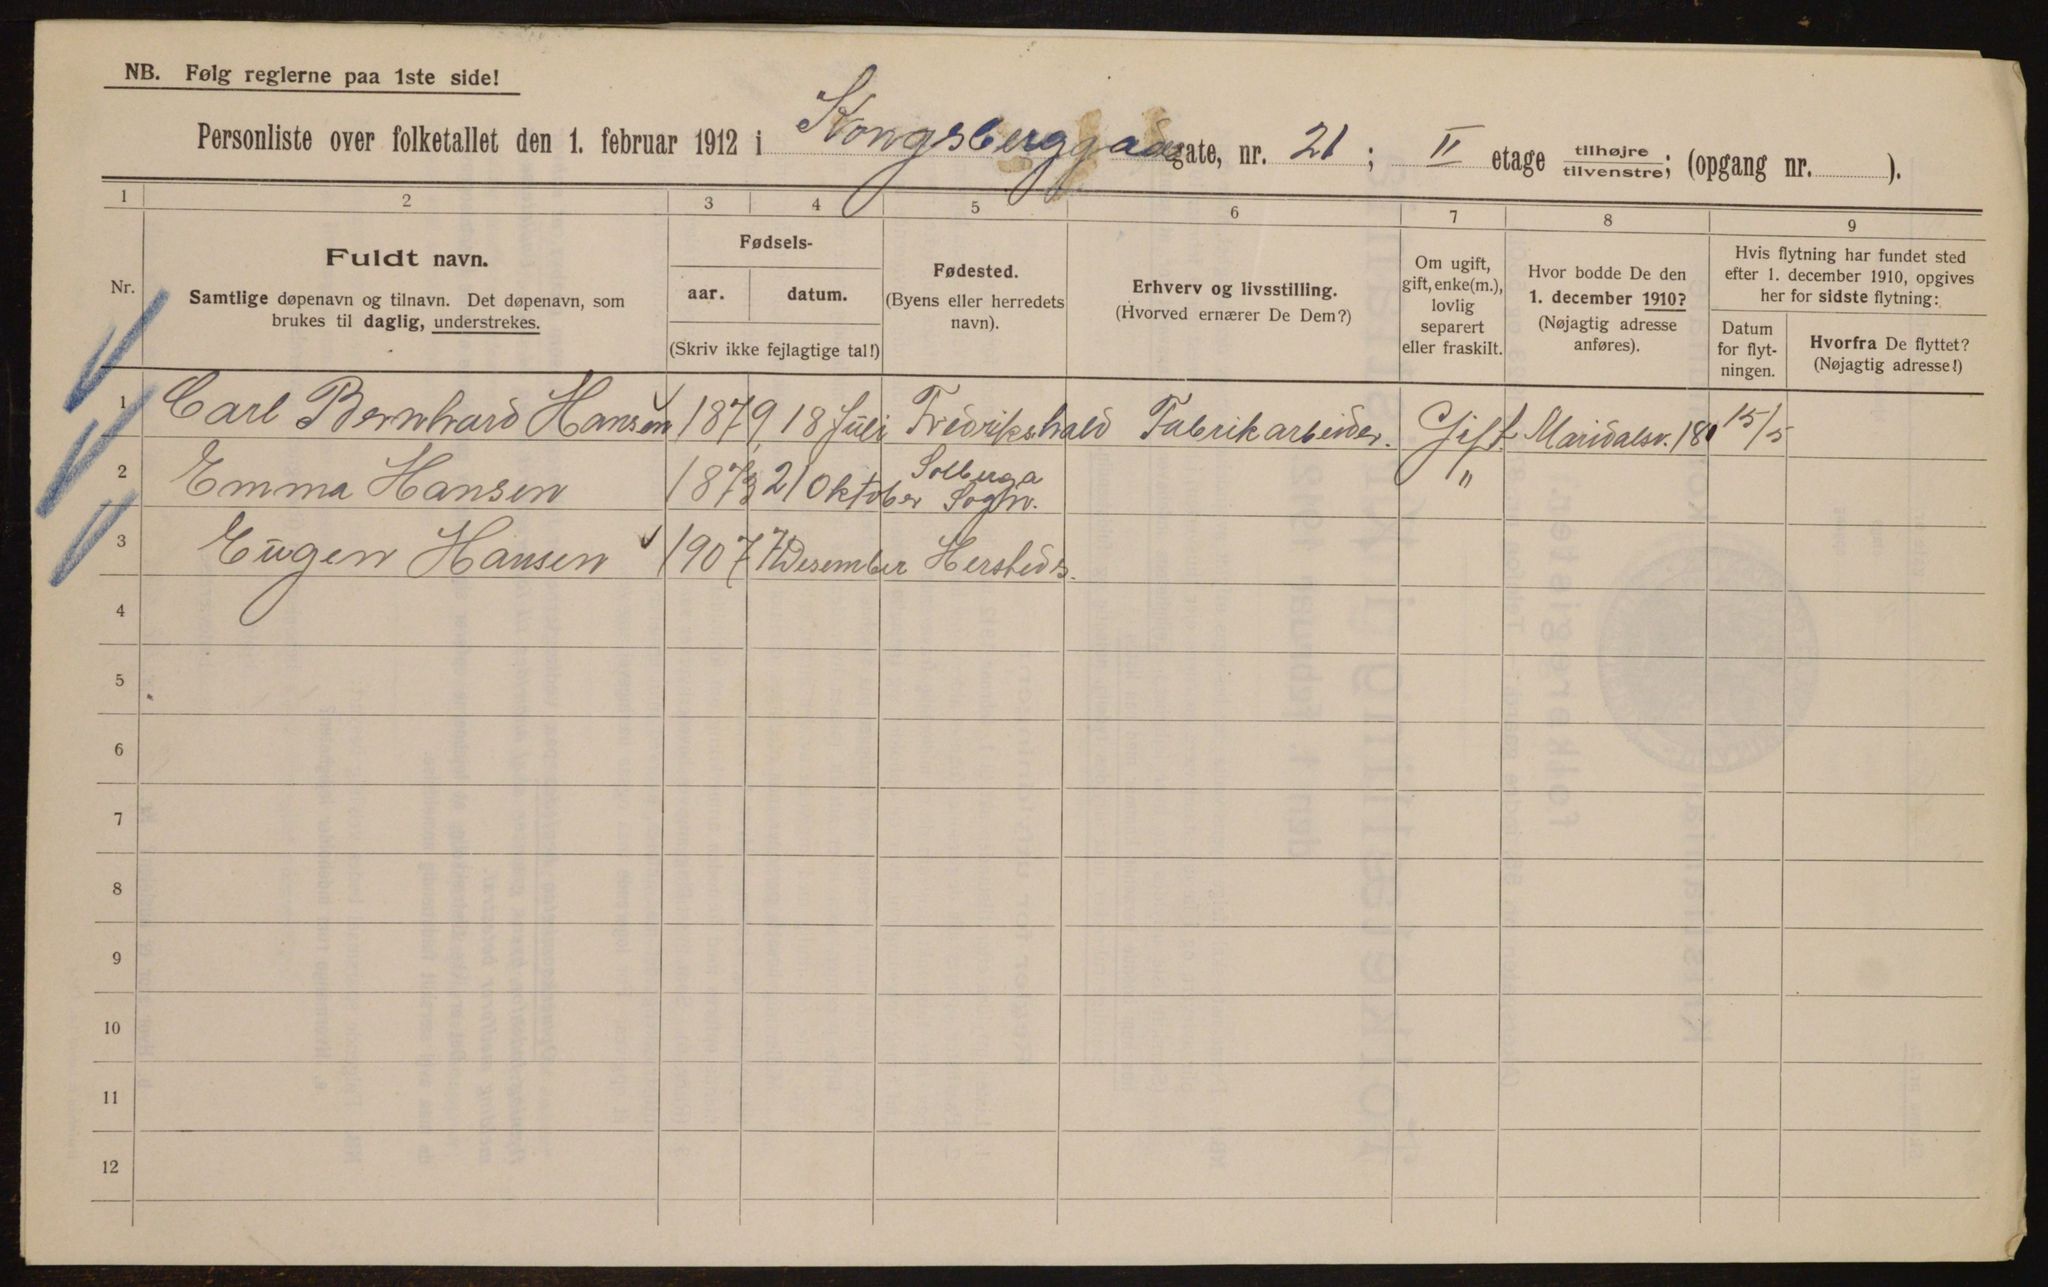 NB. Følg reglerne paa 1ste side!
Personliste over folketallet den 1. februar 1912 i Kongsberggadegate, nr. 21; II etage tilhøjre/tilvenstre; (opgang nr. ).
1 2 3 4 5 6 7 8 9
Nr.
Fuldt navn.
Samtlige døpenavn og tilnavn. Det døpenavn, som
brukes til daglig, understrekes.
Fødsels-
aar. datum.
(Skriv ikke fejlagtige tal!)
Fødested.
(Byens eller herredets
navn).
Erhverv og livsstilling.
(Hvorved ernærer De Dem?)
Om ugift,
gift, enke(m.),
lovlig
separert
eller fraskilt.
Hvor bodde De den
1. december 1910?
(Nøjagtig adresse
anføres).
Hvis flytning har fundet sted
efter 1. december 1910, opgives
her for sidste flytning:
Datum
for flyt-
ningen.
Hvorfra De flyttet?
(Nøjagtig adresse!)
1 Carl Bernhard Hansen 1879 18 Juli Fredrikshald Fabrikarbeider. Gift Maridalsv. 15/5
2 Emma Hansen 1873 21 Oktober Solberga Sogn. "
3 Eugen Hansen 1907 7 Desember
4
5
6
7
8
9
10
11
12